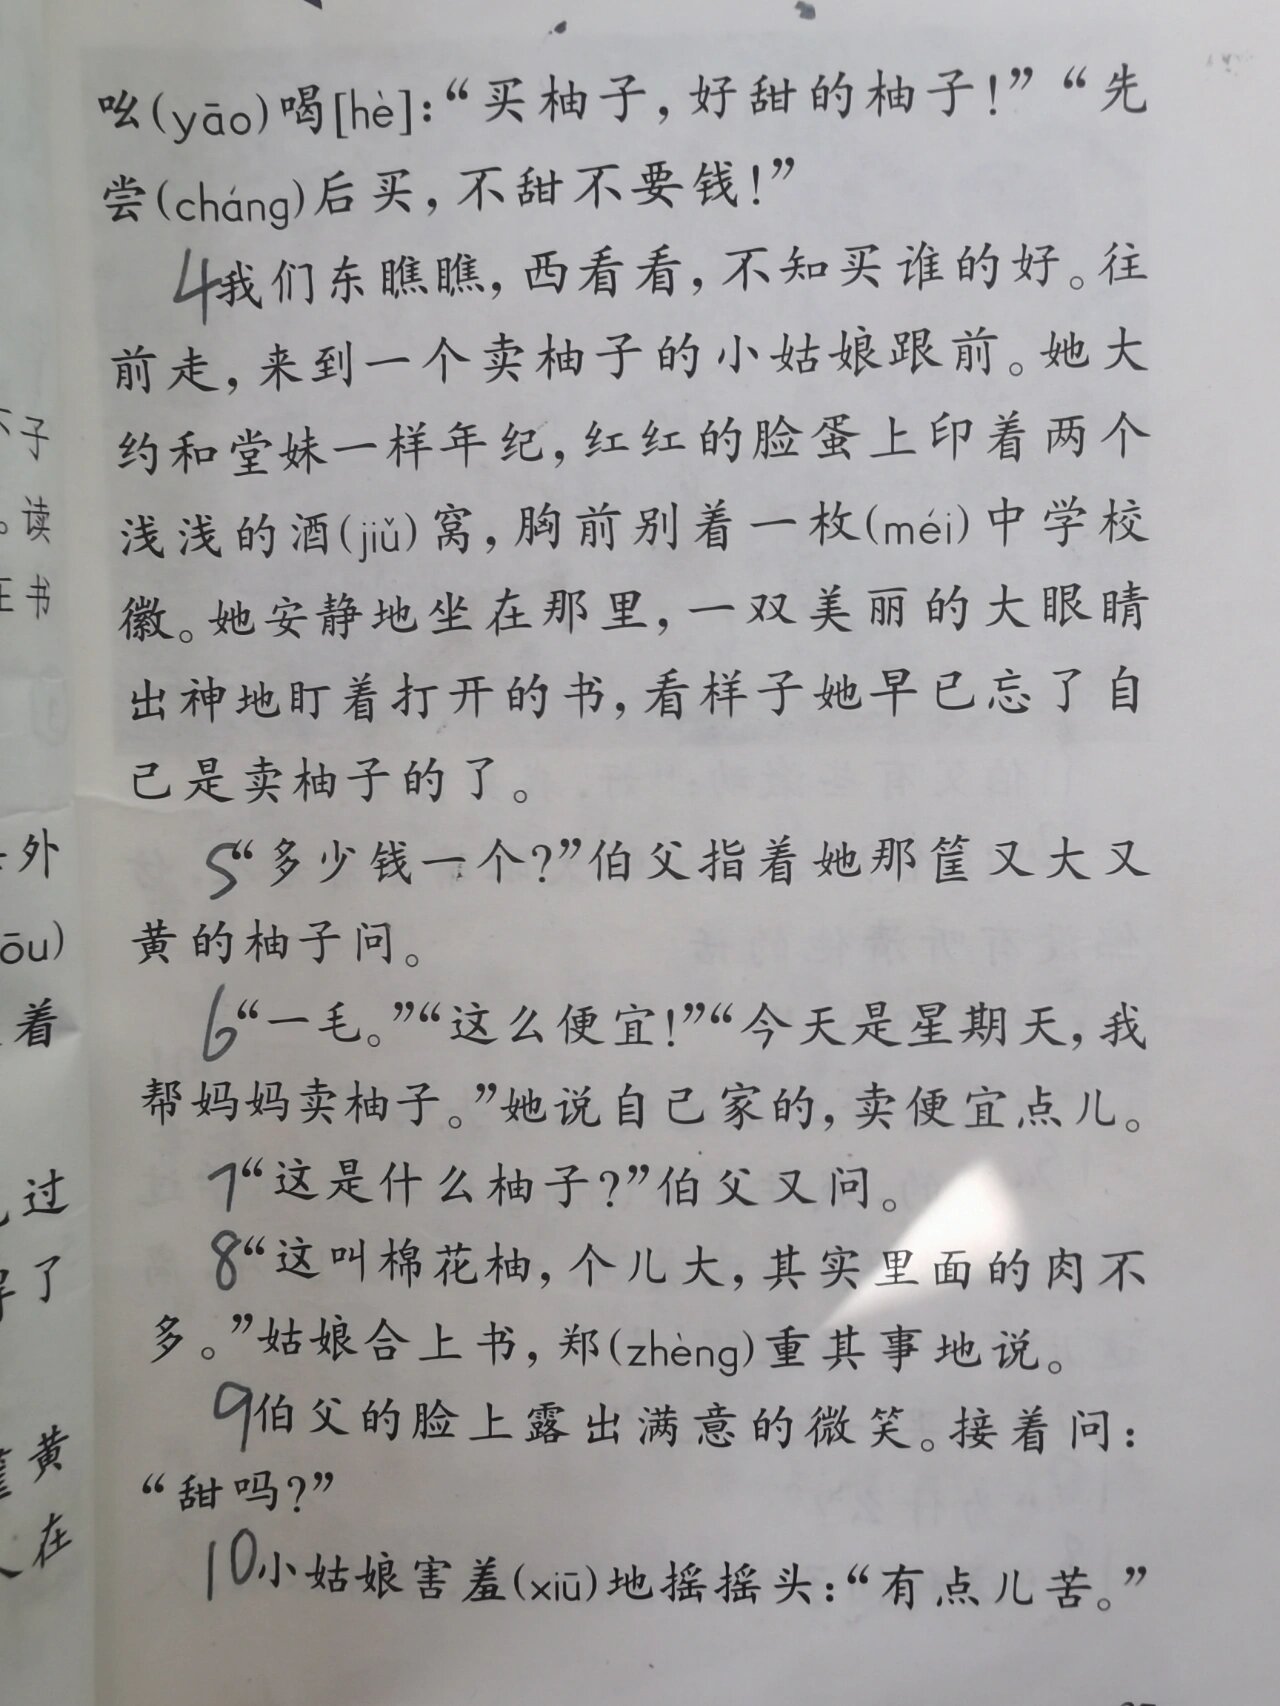 吆(yāo)喝[hè]:“买柚子,好甜的柚子!” “先
尝(cháng)后买,不甜不要钱!”
4我们东瞧瞧,西看看,不知买谁的好。往
前走,来到一个卖柚子的小姑娘跟前。她大
约和堂妹一样年纪,红红的脸蛋上印着两个
浅浅的酒(jiǔ)窝,胸前别着一枚(méi)中学校
徽。她安静地坐在那里,一双美丽的大眼睛
出神地盯着打开的书,看样子她早已忘了自
己是卖柚子的了。
5“多少钱一个?”伯父指着她那筐又大又
黄的柚子问。
6“一毛。”“这么便宜!”“今天是星期天,我
帮妈妈卖柚子。”她说自己家的,卖便宜点儿。
7“这是什么柚子?”伯父又问。
8“这叫棉花柚,个儿大,其实里面的肉不
多。”姑娘合上书,郑(zhèng)重其事地说。
9伯父的脸上露出满意的微笑。接着问:
“甜吗?”
10小姑娘害羞(xiū)地摇摇头:“有点儿苦。”
子
。读
书
外
ōu)
着
过
了
黄
在